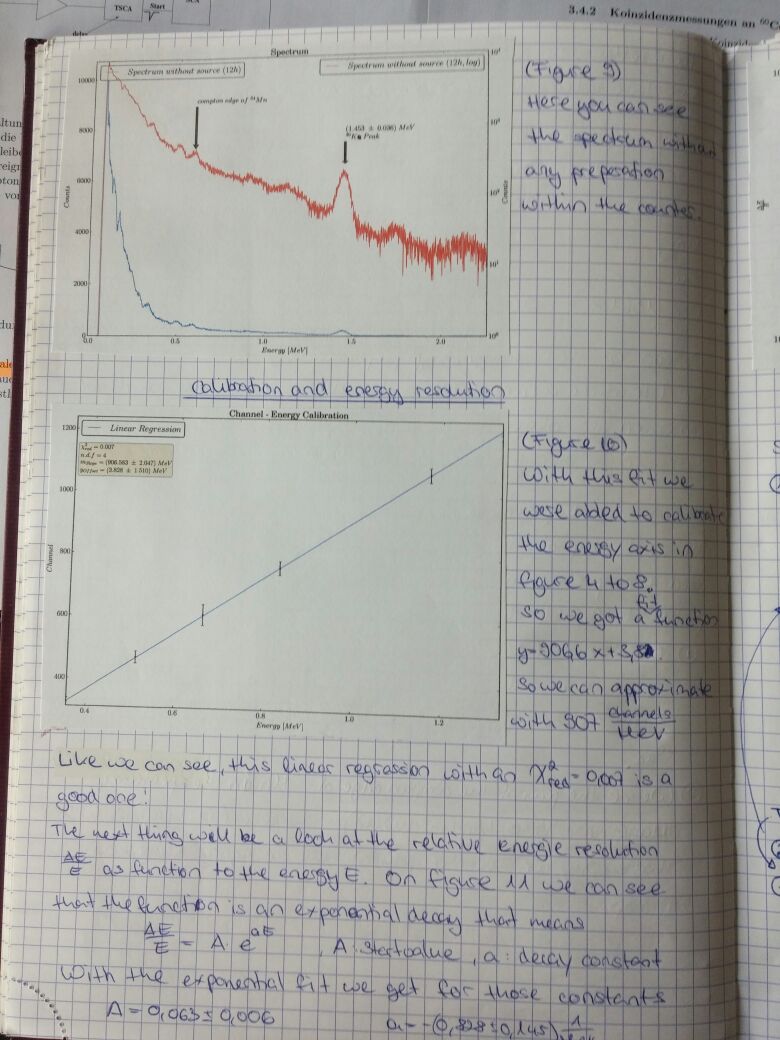 TSCA
Start
3.4.2 Koinzidenzmessungen an ⁶⁰C
Spectrum
Spectrum without source (12h)
Spectrum without source (12h, log)
compton edge of ⁵⁴Mn
(1.453 ± 0.036) MeV
Peak
Counts
Counts
10000
8000
6000
4000
2000
0
0.0 0.5 1.0 1.5 2.0
Energy [MeV]
10⁴
10³
10²
10¹
10⁰
(Figure 9)
Here you can see
the spectrum without
any preperation
within the counter.
calibration and energy resolution
Channel - Energy Calibration
Linear Regression
χ²red = 0.007
n.d.f = 4
mSlope = (906.563 ± 2.047) MeV
yOffset = (3.828 ± 1.510) MeV
Channel
1200
1000
800
600
400
0.4 0.6 0.8 1.0 1.2
Energy [MeV]
(Figure 10)
With this fit we
were abled to calibrate
the energy axis in
figure 4 to 8.
So we got a fit function
y=906,6 x+3,8.
So we can approximate
with 907 channels/MeV
Like we can see, this linear regression with an χ²red = 0,007 is a
good one!
The next thing will be a look at the relative energie resolution
ΔE/E as function to the energy E. On figure 11 we can see
that the function is an exponential decay that means
ΔE/E = A · e^aE , A: startvalue, a: decay constant
With the exponential fit we get for those constants
A = 0,063 ± 0,006 a = -(0,828 ± 0,145) 1/